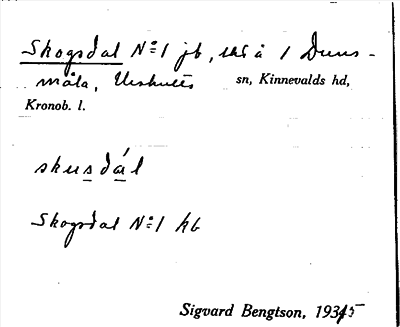 Skogsdal Nº 1 jb, skå 1 Duns-
måla, Urshults sn, Kinnevalds hd,
Kronob. l.
skusdál
Skogsdal Nº 1 kb
Sigvard Bengtson, 1935